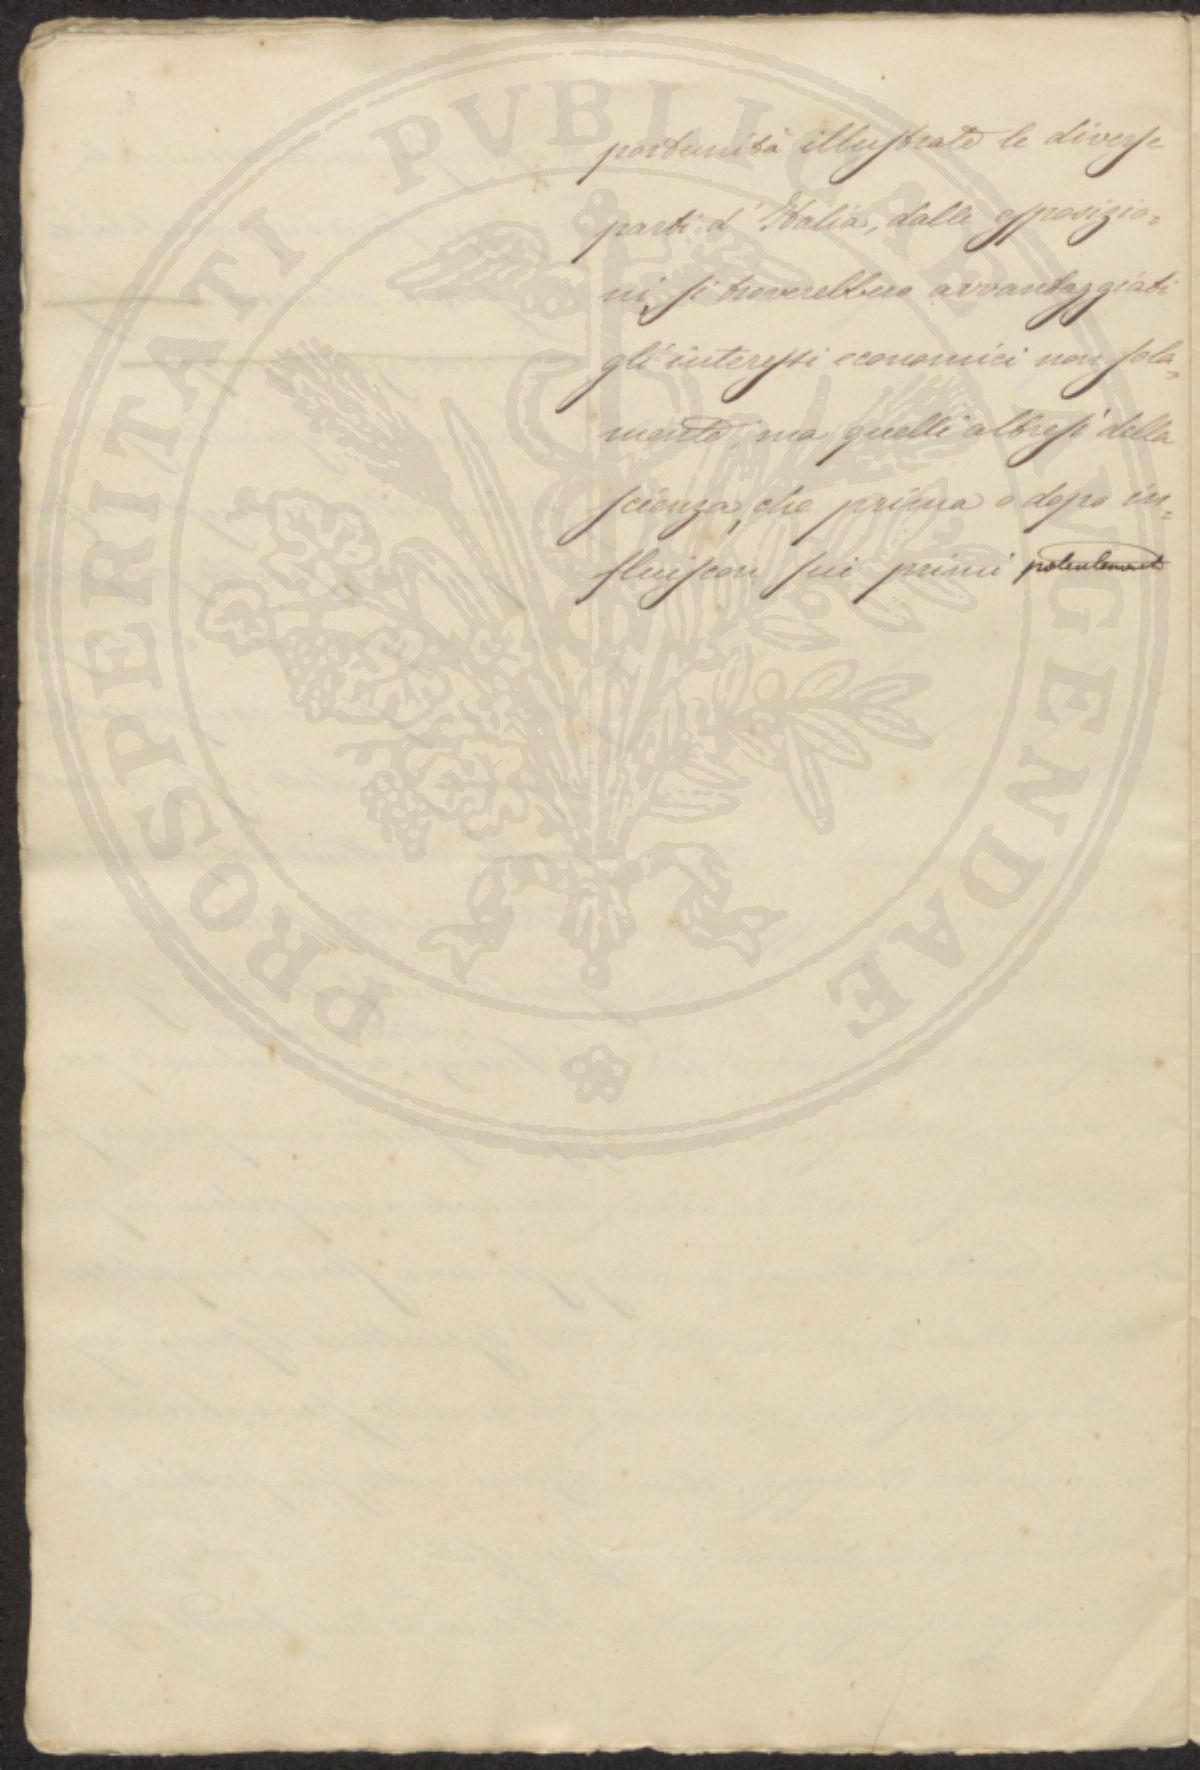 PROSPERITATI PVBLICAE AVGENDAE
portunità illustrate le diverse
parti d'Italia, dalle esposizio=
ni, si troverebbero avvantaggiati
gli interessi economici non sola=
mente, ma quelli altresì della
scienza, che prima o dopo in=
fluiscon sui primi potentement